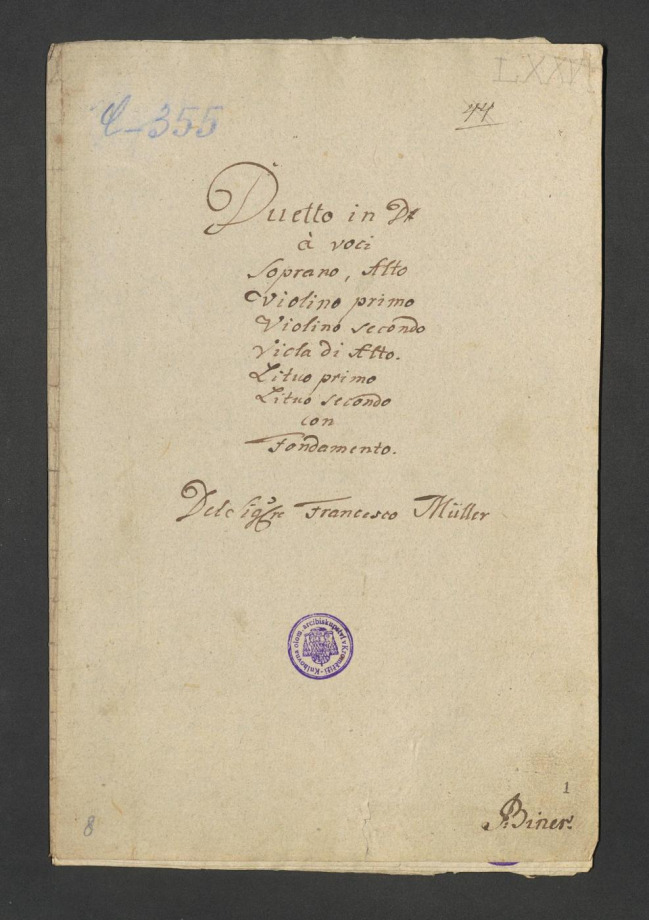 LXXV
C-355
44
Duetto in D#
à voci
Soprano, Alto
Violino primo
Violino secondo
Viola di Alto.
Lituo primo
Lituo secondo
con
Fondamento.
Del Sigre Francesco Müller
Knihovna olom. arcibiskupství v Kroměříži
1
Biner.
8